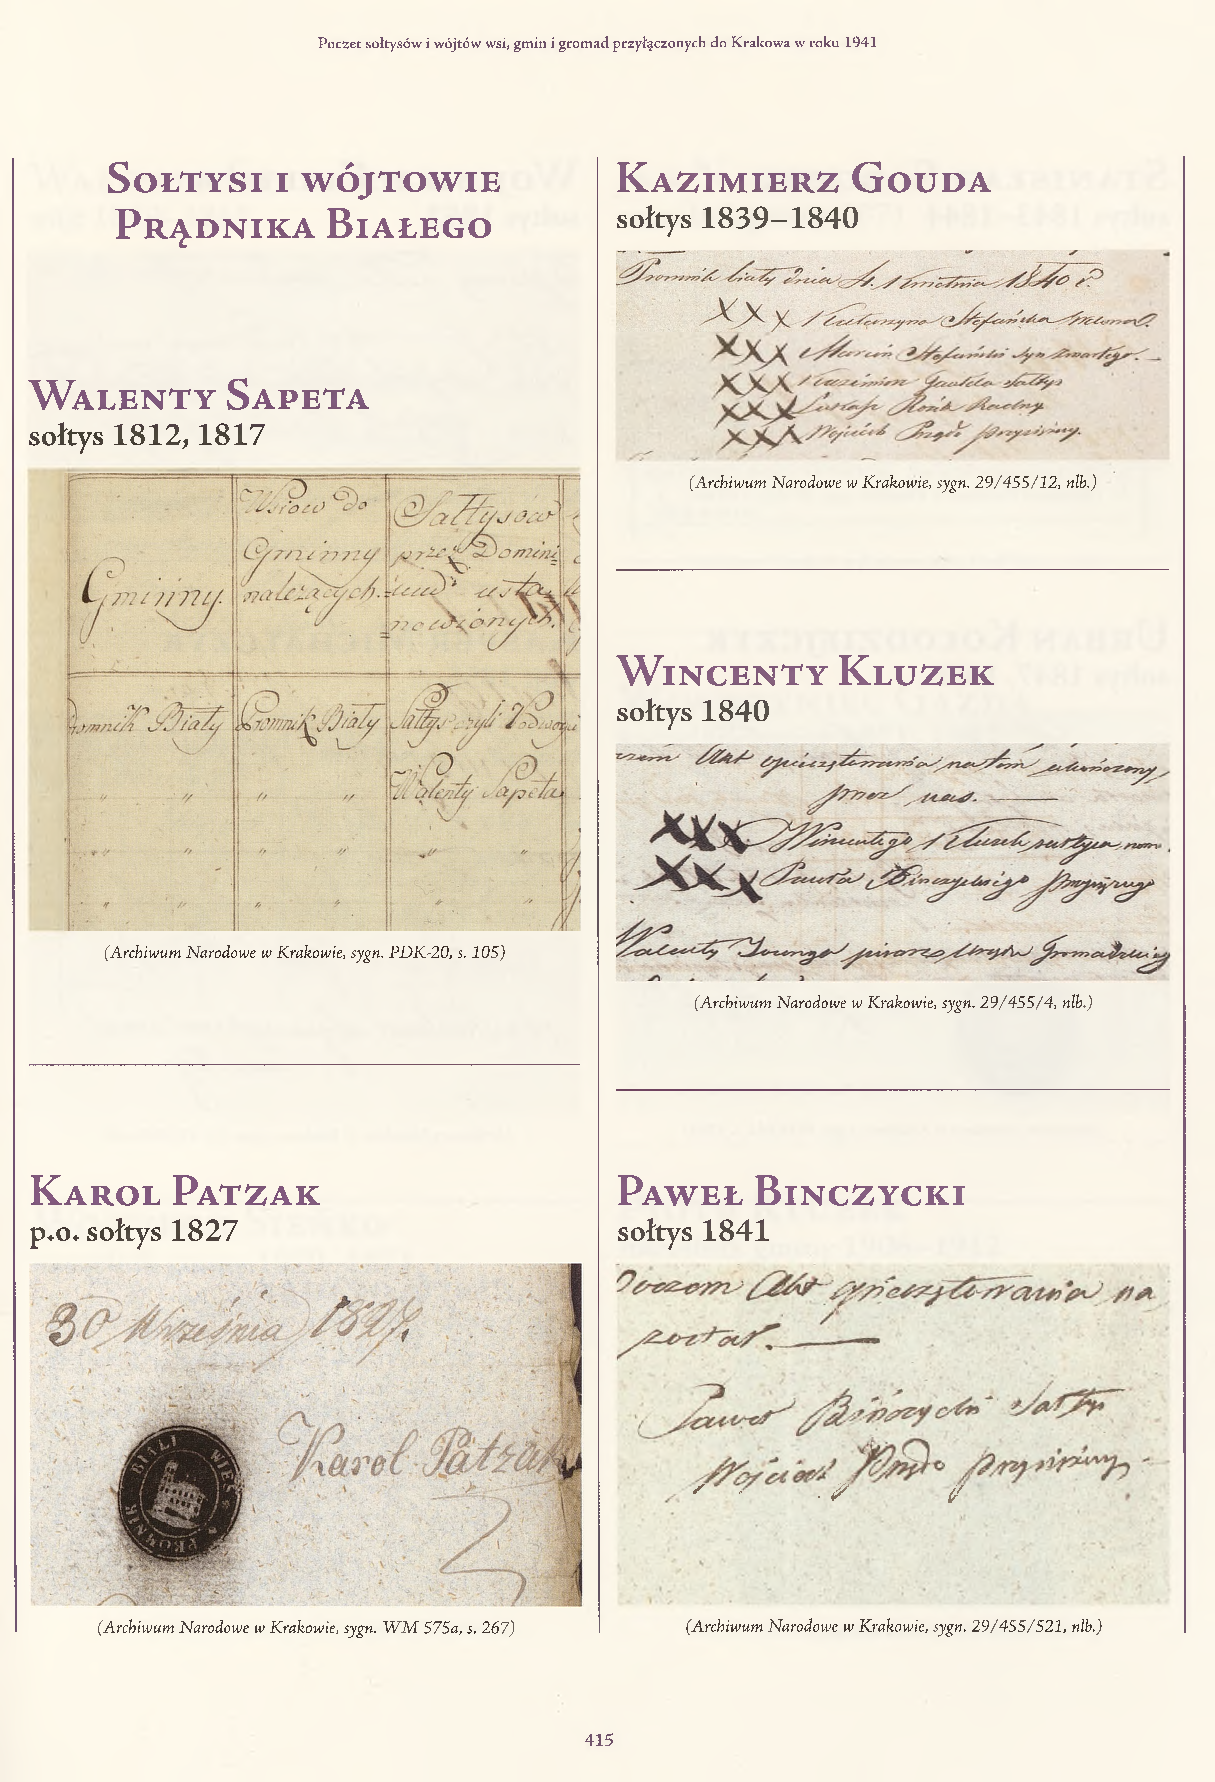 Poczet sołtysów i wójtów wsi, gmin i gromad przyłączonych do Krakowa w roku 1941
Sołtysi i wójtowie
Prądnika Białego
Walenty Sapeta
sołtys 1812, 1817
Gminny.
Wsiow do
Gminny
należących.
Sałtysów
przez Domini=
=um usta
=nowionych.
Promnik Biały
Promnik Biały
Sałtys czyli Podwoyci
Walenty Sapeta
(Archiwum Narodowe w Krakowie, sygn. PDK-20, s. 105)
Karol Patzak
p.o. sołtys 1827
30 Września 1827.
Karol Patzak
PROWNIK BIALI WIES
(Archiwum Narodowe w Krakowie, sygn. WM 575a, s. 267)
Kazimierz Gouda
sołtys 1839–1840
Promnik biały dnia 4. Kwietnia 1840 r.
XXX Katarzyna Stefańska Wdowa.
XXX Marcin Stefański syn zmarłego.
XXX Kazimierz Gauda Sałtys
XXX Radny
XXX Wojciech przysiężny.
(Archiwum Narodowe w Krakowie, sygn. 29/455/12, nlb.)
Wincenty Kluzek
sołtys 1840
Akt opieczętowania na tem ukończony
przez nas.
XXX Wincentego Kluzek sałtysa
XXX Pawła Binczyckiego przysiężnego
Walenty pisarz Urzędu Gromadzkiej
(Archiwum Narodowe w Krakowie, sygn. 29/455/4, nlb.)
Paweł Binczycki
sołtys 1841
Poczem Akt opieczętowania na
został.
Paweł Bińczycki Sałtys
Wojciech przysiężny
(Archiwum Narodowe w Krakowie, sygn. 29/455/521, nlb.)
415